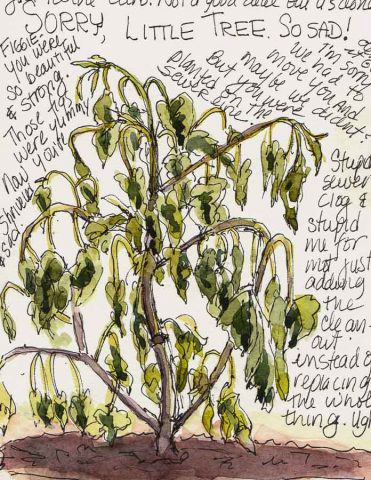 to the curb. Not a good deal but it's done
SORRY, LITTLE TREE. SO SAD!
FIGGIE:
You were
so beautiful
& strong.
Those figs
were yummy
Now you're
shriveled
I'm sorry
we had to
move you and
maybe we didn't.
But you were
planted by the
sewer line.
Stupid
sewer
clog &
stupid
me for
not just
adding
the
clean-
out
instead of
replacing
the whole
thing. Ugh